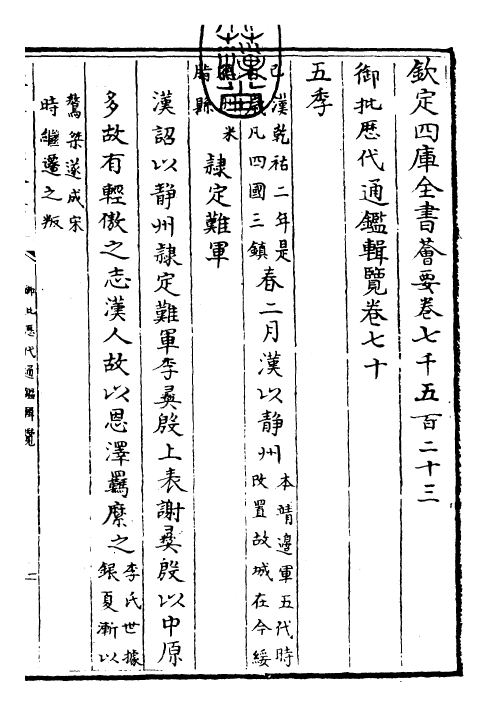 欽定四庫全書薈要卷七千五百二十三
御批厯代通鑑輯覽卷七十
五季
己 漢乾祐二年是
歲凡四國三鎮
春二月漢以静州
本靖邊軍五代時
改置故城在今綏
州米
脂縣
隷定難軍
漢詔以静州隷定難軍李彝殷上表謝彝殷以中原
多故有輕傲之志漢人故以恩澤羈縻之
李氏世據
銀夏漸以
驁桀遂成宋
時繼遷之叛
御批厯代通鑑輯覽
二